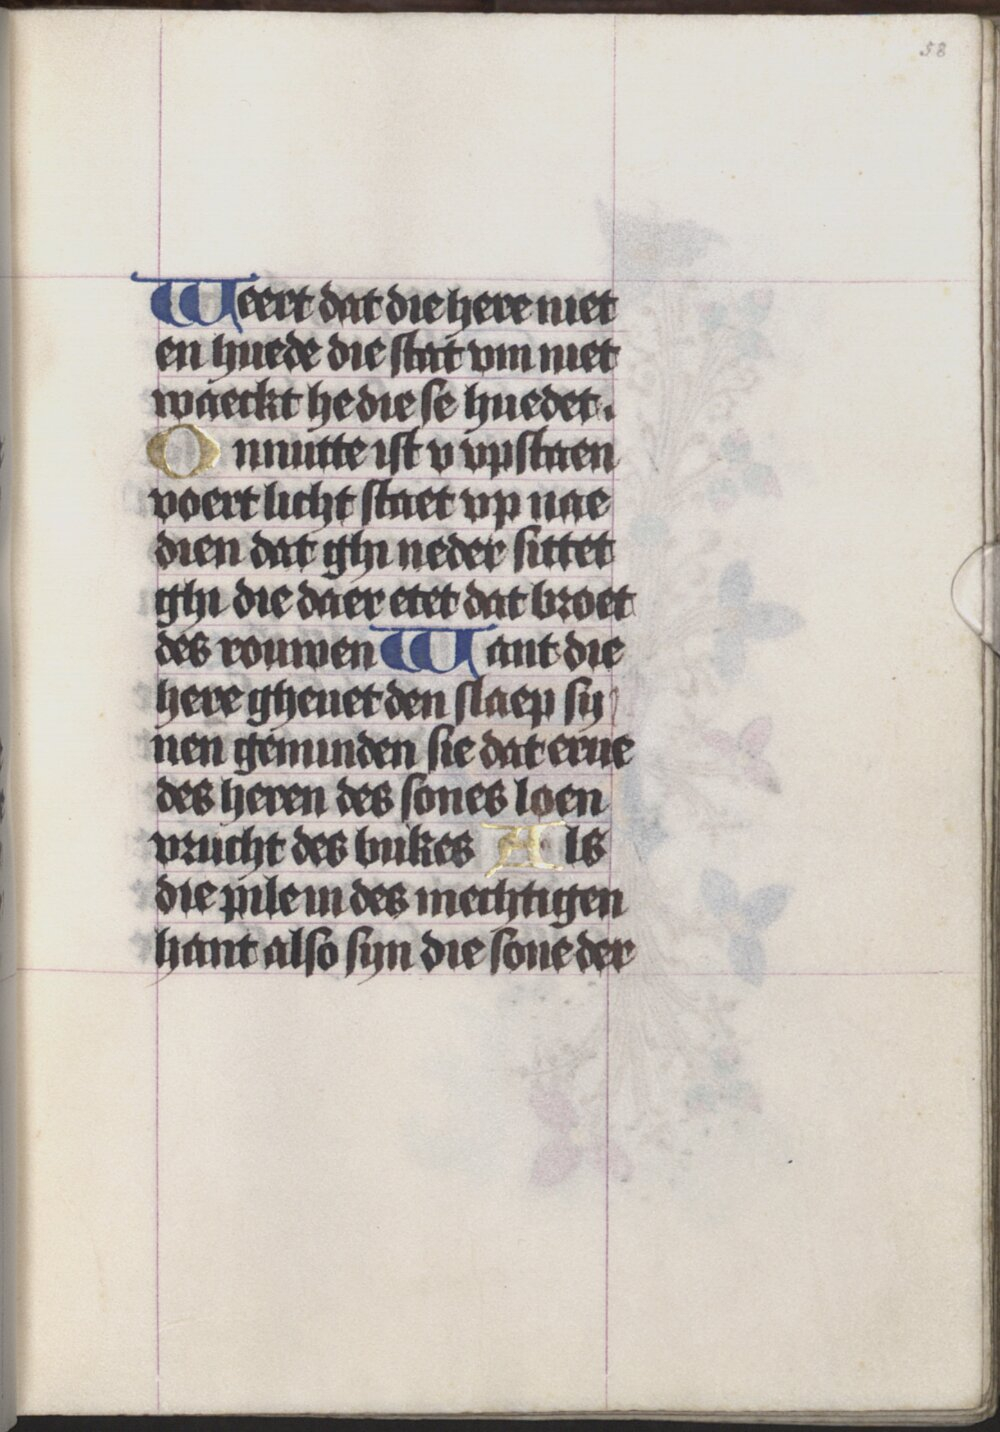 58
Weert dat die here niet
en huede die stat vm niet
waeckt he die se huedet.
Onnutte ist v vpstaen
voert licht staet vp nae
dien dat ghy neder sittet
ghy die daer etet dat broet
des rouwen Want die
here gheuet den slaep sy
nen geminden sie dat erue
des heren des sones loen
vrucht des bukes Als
die pile in des mechtigen
hant also syn die sone der